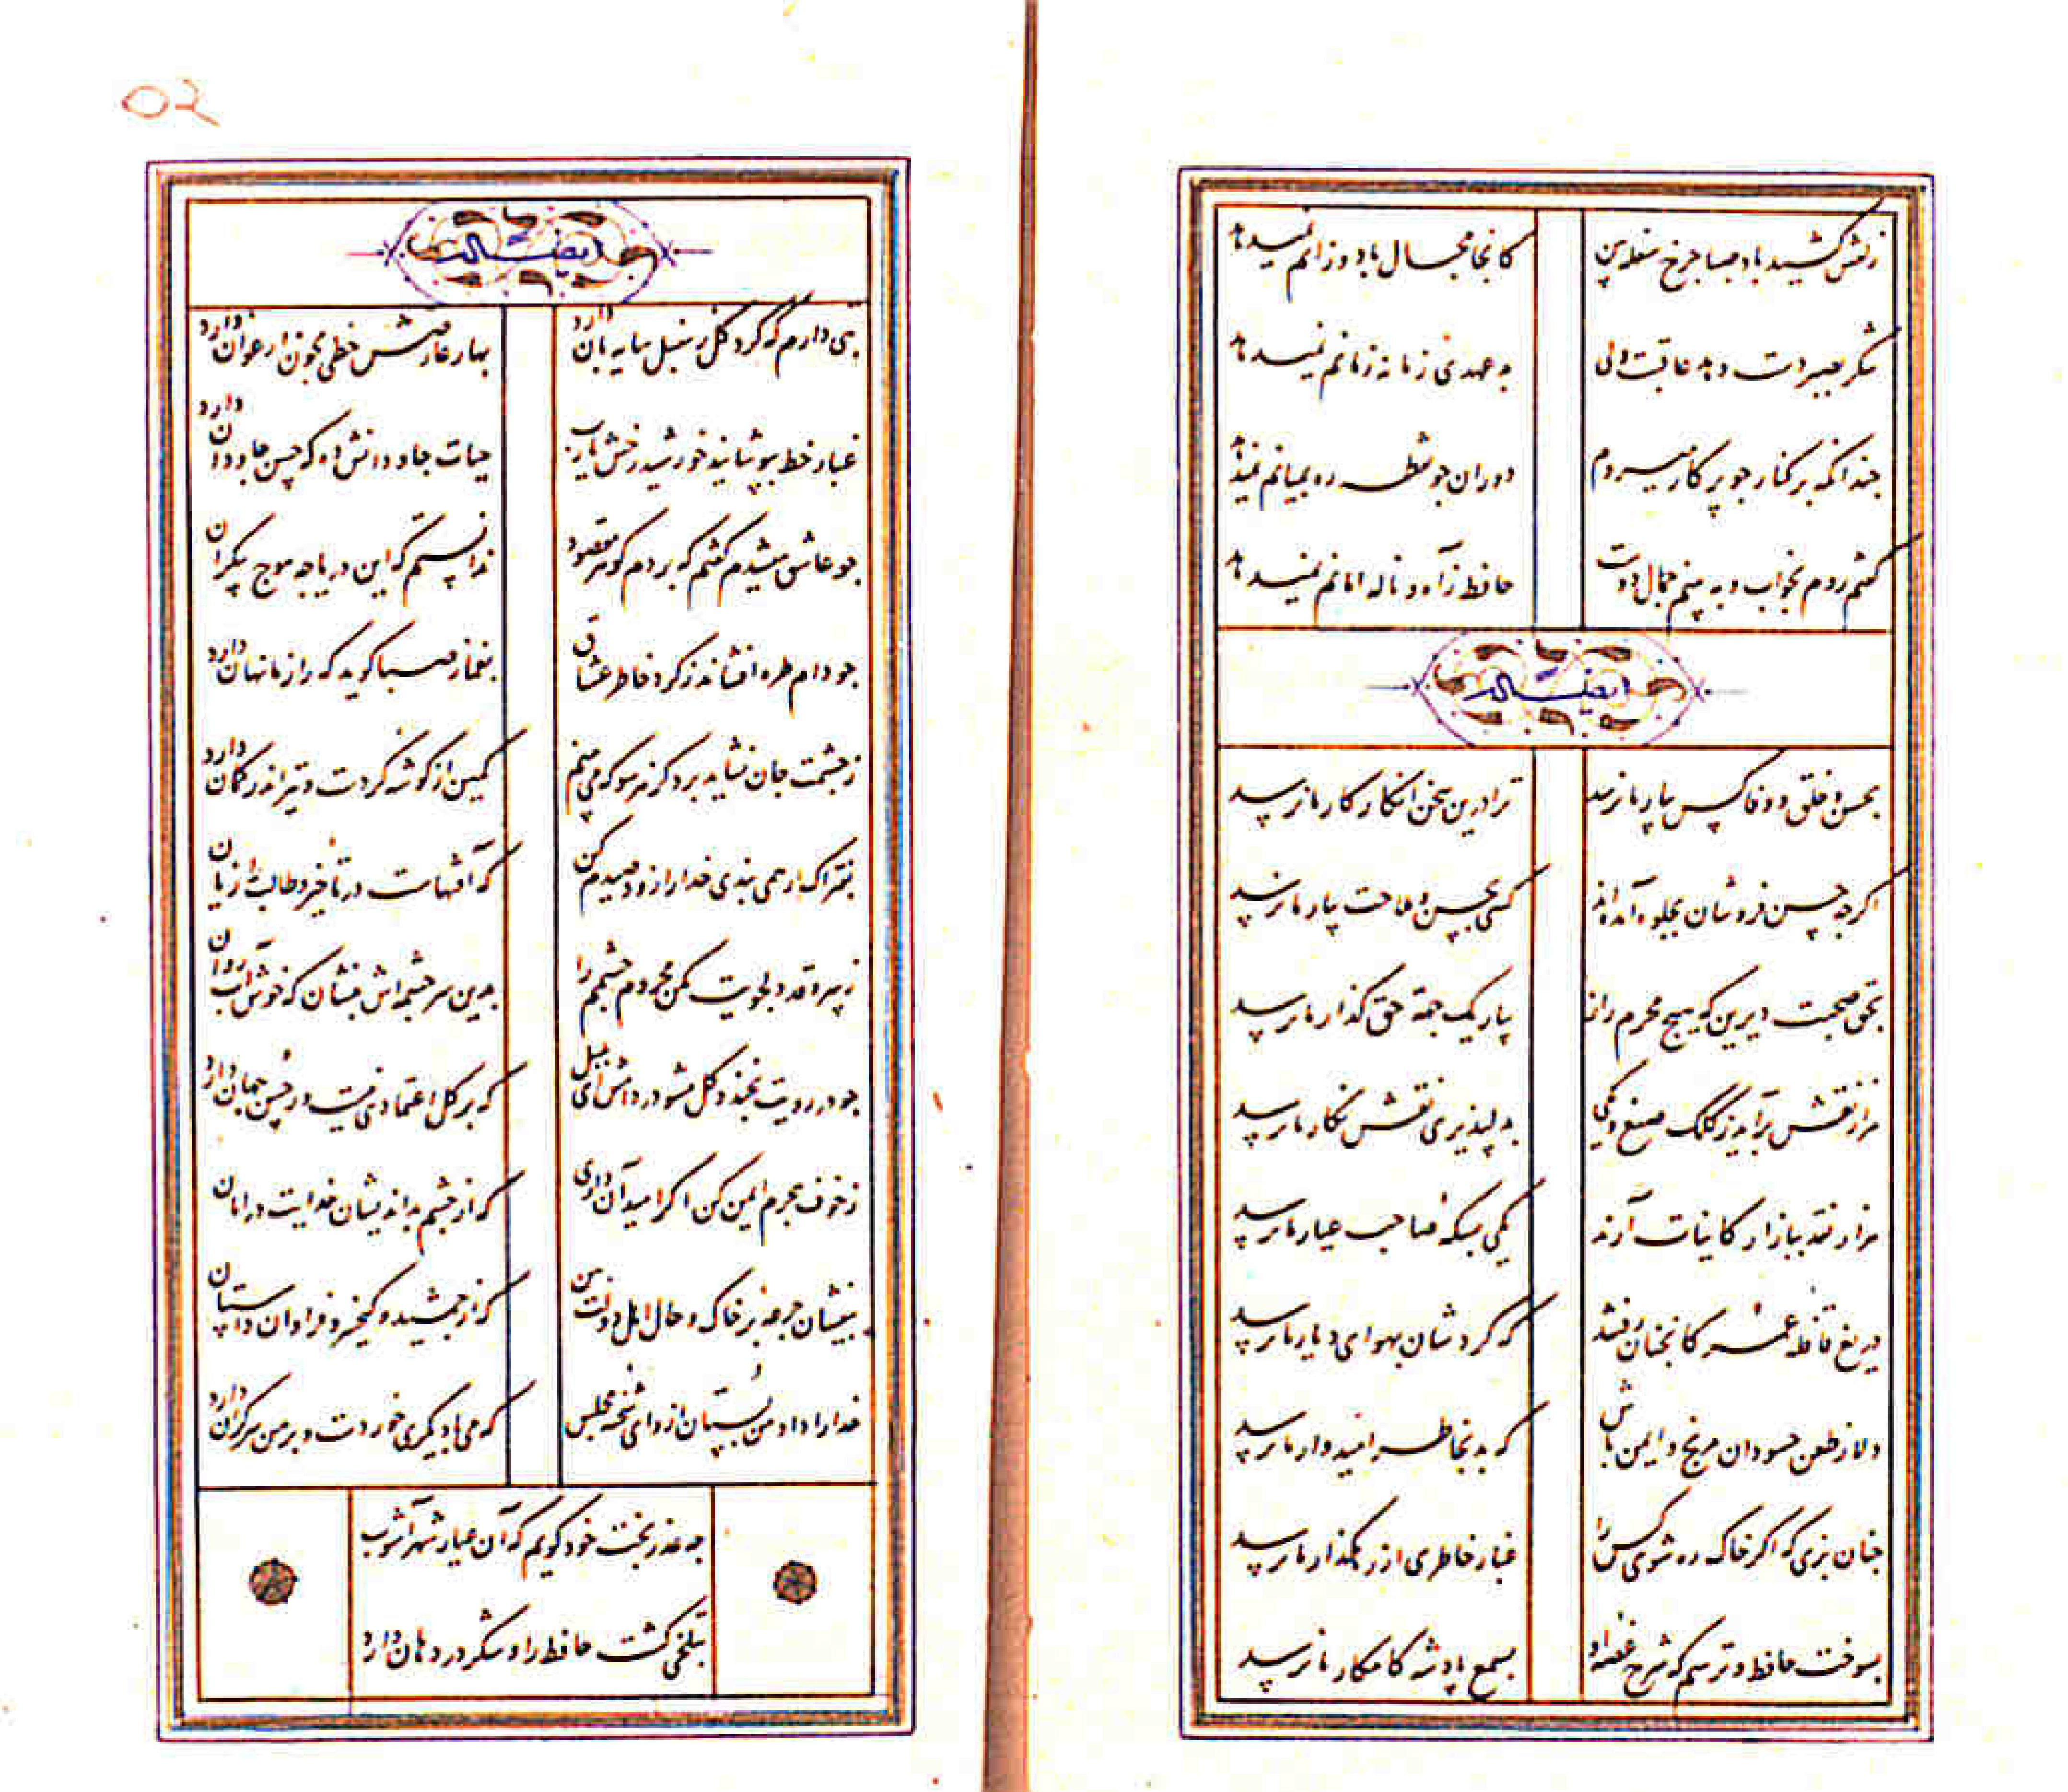 زلفش کشید باد صبا چرخ سفله بین
کانجا مجال باد وزانم نمیدهد
شکر بصبر دست دهد عاقبت ولی
بد عهدی زمانه زمانم نمیدهد
چندانکه بر کنار چو پرکار میروم
دوران چو نقطه ره بمیانم نمیدهد
گفتم روم بخواب و به بینم جمال دوست
حافظ ز آه و ناله امانم نمیدهد
ایضاً له
بحسن و خلق و وفا کس بیار ما نرسد
ترا درین سخن انکار کار ما نرسد
اگرچه حسن فروشان بجلوه آمده اند
کسی بحسن و ملاحت بیار ما نرسد
بحق صحبت دیرین که هیچ محرم راز
بیار یک جهة حق گذار ما نرسد
هزار نقش برآید ز کلک صنع و یکی
بدلپذیری نقش نگار ما نرسد
هزار نقد ببازار کاینات آرند
یکی بسکهٔ صاحب عیار ما نرسد
دریغ قافلهٔ عمر کانچنان رفتند
که گردشان بهوای دیار ما نرسد
دلا ز طعن حسودان مرنج و ایمن باش
که بد بخاطر امیدوار ما نرسد
چنان بزی که اگر خاک ره شوی کس را
غبار خاطری از رهگذار ما نرسد
بسوخت حافظ و ترسم که شرح غصهٔ او
بسمع پادشه کامکار ما نرسد
۵۲
ایضاً له
بتی دارم که گرد گل ز سنبل سایه بان دارد
بهار عارضش خطی بخون ارغوان دارد
غبار خط بپوشانید خورشید رخش یا رب
حیات جاودانش ده که حسن جاودان دارد
چو عاشق میشدم گفتم که بردم گوهر مقصود
ندانستم که این دریا چه موج بیکران
چو دام طره افشاند ز گرد خاطر عشاق
بغماز صبا گوید که راز ما نهان دارد
ز چشمت جان نشاید برد کز هر سو که می بینم
کمین از گوشهٔ کردست و تیر اندر کمان دارد
بفتراک ار همی بندی خدا را زود صیدم کن
که آفتهاست در تأخیر و طالب را زیان
ز سرو قد دلجویت مکن محروم چشمم را
بدین سرچشمه اش بنشان که خوش آب روان
چو در رویت بخندد گل مشو در دامش ای بلبل
که بر گل اعتمادی نیست ور حسن جهان دارد
ز خوف هجرم ایمن کن اگر امید آن داری
که از چشم بداندیشان خدایت در امان
بیفشان جرعه بر خاک و حال اهل دولت بین
که از جمشید و کیخسرو فراوان داستان
خدا را داد من بستان ازو ای شحنهٔ مجلس
که می با دیگری خوردست و بر من سر گران دارد
چه عذر بخت خود گویم که آن عیار شهرآشوب
بتلخی کشت حافظ را و شکر در دهان دارد